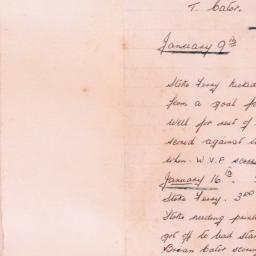 T. Cator.
January 9th
Stoke Ferry kicked
from a goal
well for rest of
scored against
when W.V.F scored
January 16th
Stoke Ferry. 3rd
Stoke needing points
got off to bad start
Brian Cator scored